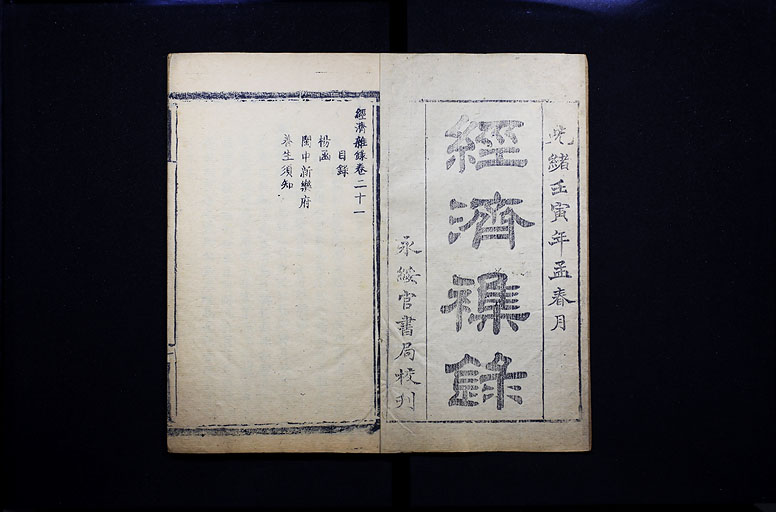 光緒壬寅年孟春月
經濟襍錄
永綏官書局校刋
經濟雜錄卷二十一
目錄
楊函
閩中新樂府
养生須知